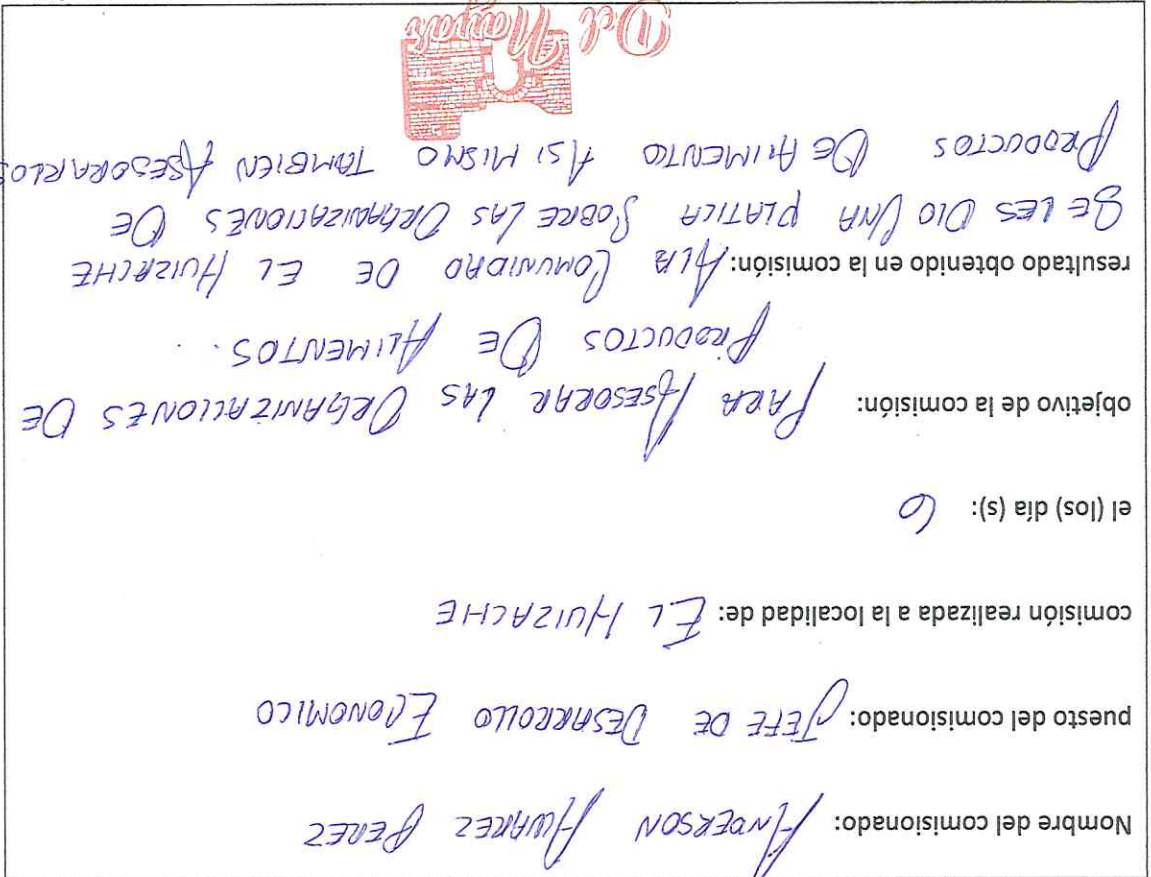 Nombre del comisionado: ANDERSON ALVAREZ PEREZ
puesto del comisionado: JEFE DE DESARROLLO ECONOMICO
comisión realizada a la localidad de: EL HUIZACHE
el (los) día (s): 6
objetivo de la comisión: PARA ASESORAR LAS ORGANIZACIONES DE
PRODUCTOS DE ALIMENTOS.
resultado obtenido en la comisión: ALA COMUNIDAD DE EL HUIZACHE
SE LES DIO UNA PLATICA SOBRE LAS ORGANIZACIONES DE
PRODUCTOS DE ALIMENTO ASI MISMO TAMBIEN ASESORARLOS
Del
Nayar